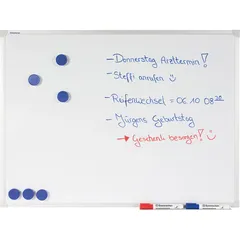 - Donnerstag Arzttermin!
- Steffi anrufen ☺
- Reifenwechsel = 06 10 08 28
- Jürgens Geburtstag
→ Geschenk besorgen! ☺